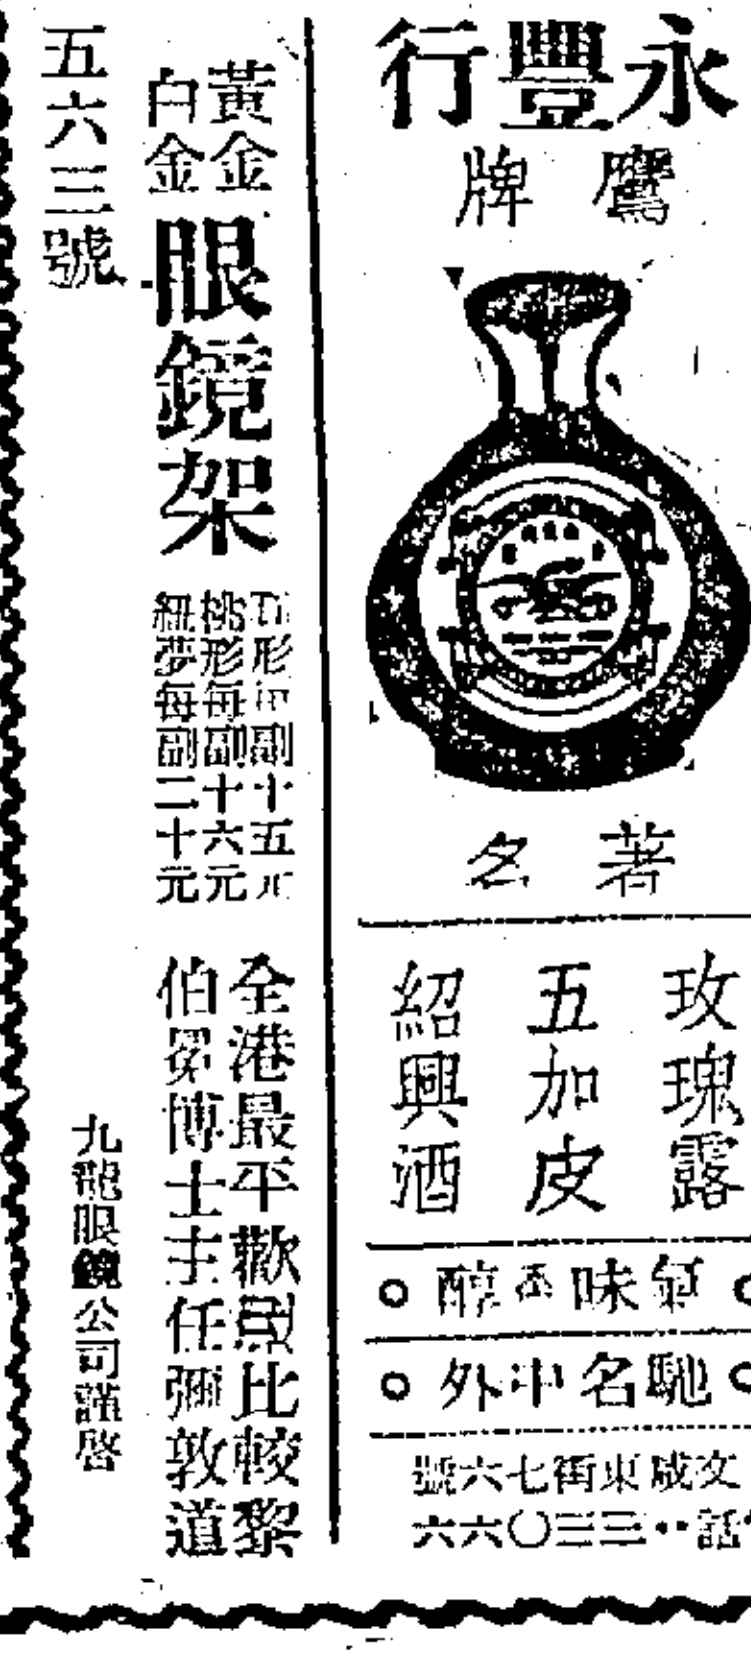 永豐行
鷹牌
著名
玫瑰露
五加皮
紹興酒
氣味香醇
馳名中外
文咸東街七六號
話：三三〇六六
黃金
白金
眼鏡架
形每副十五元
桃形每副十六元
紐夢每副二十元
全港最平歡迎比較黎
伯晃博士主任彌敦道
五六三號
九龍眼鏡公司謹啓